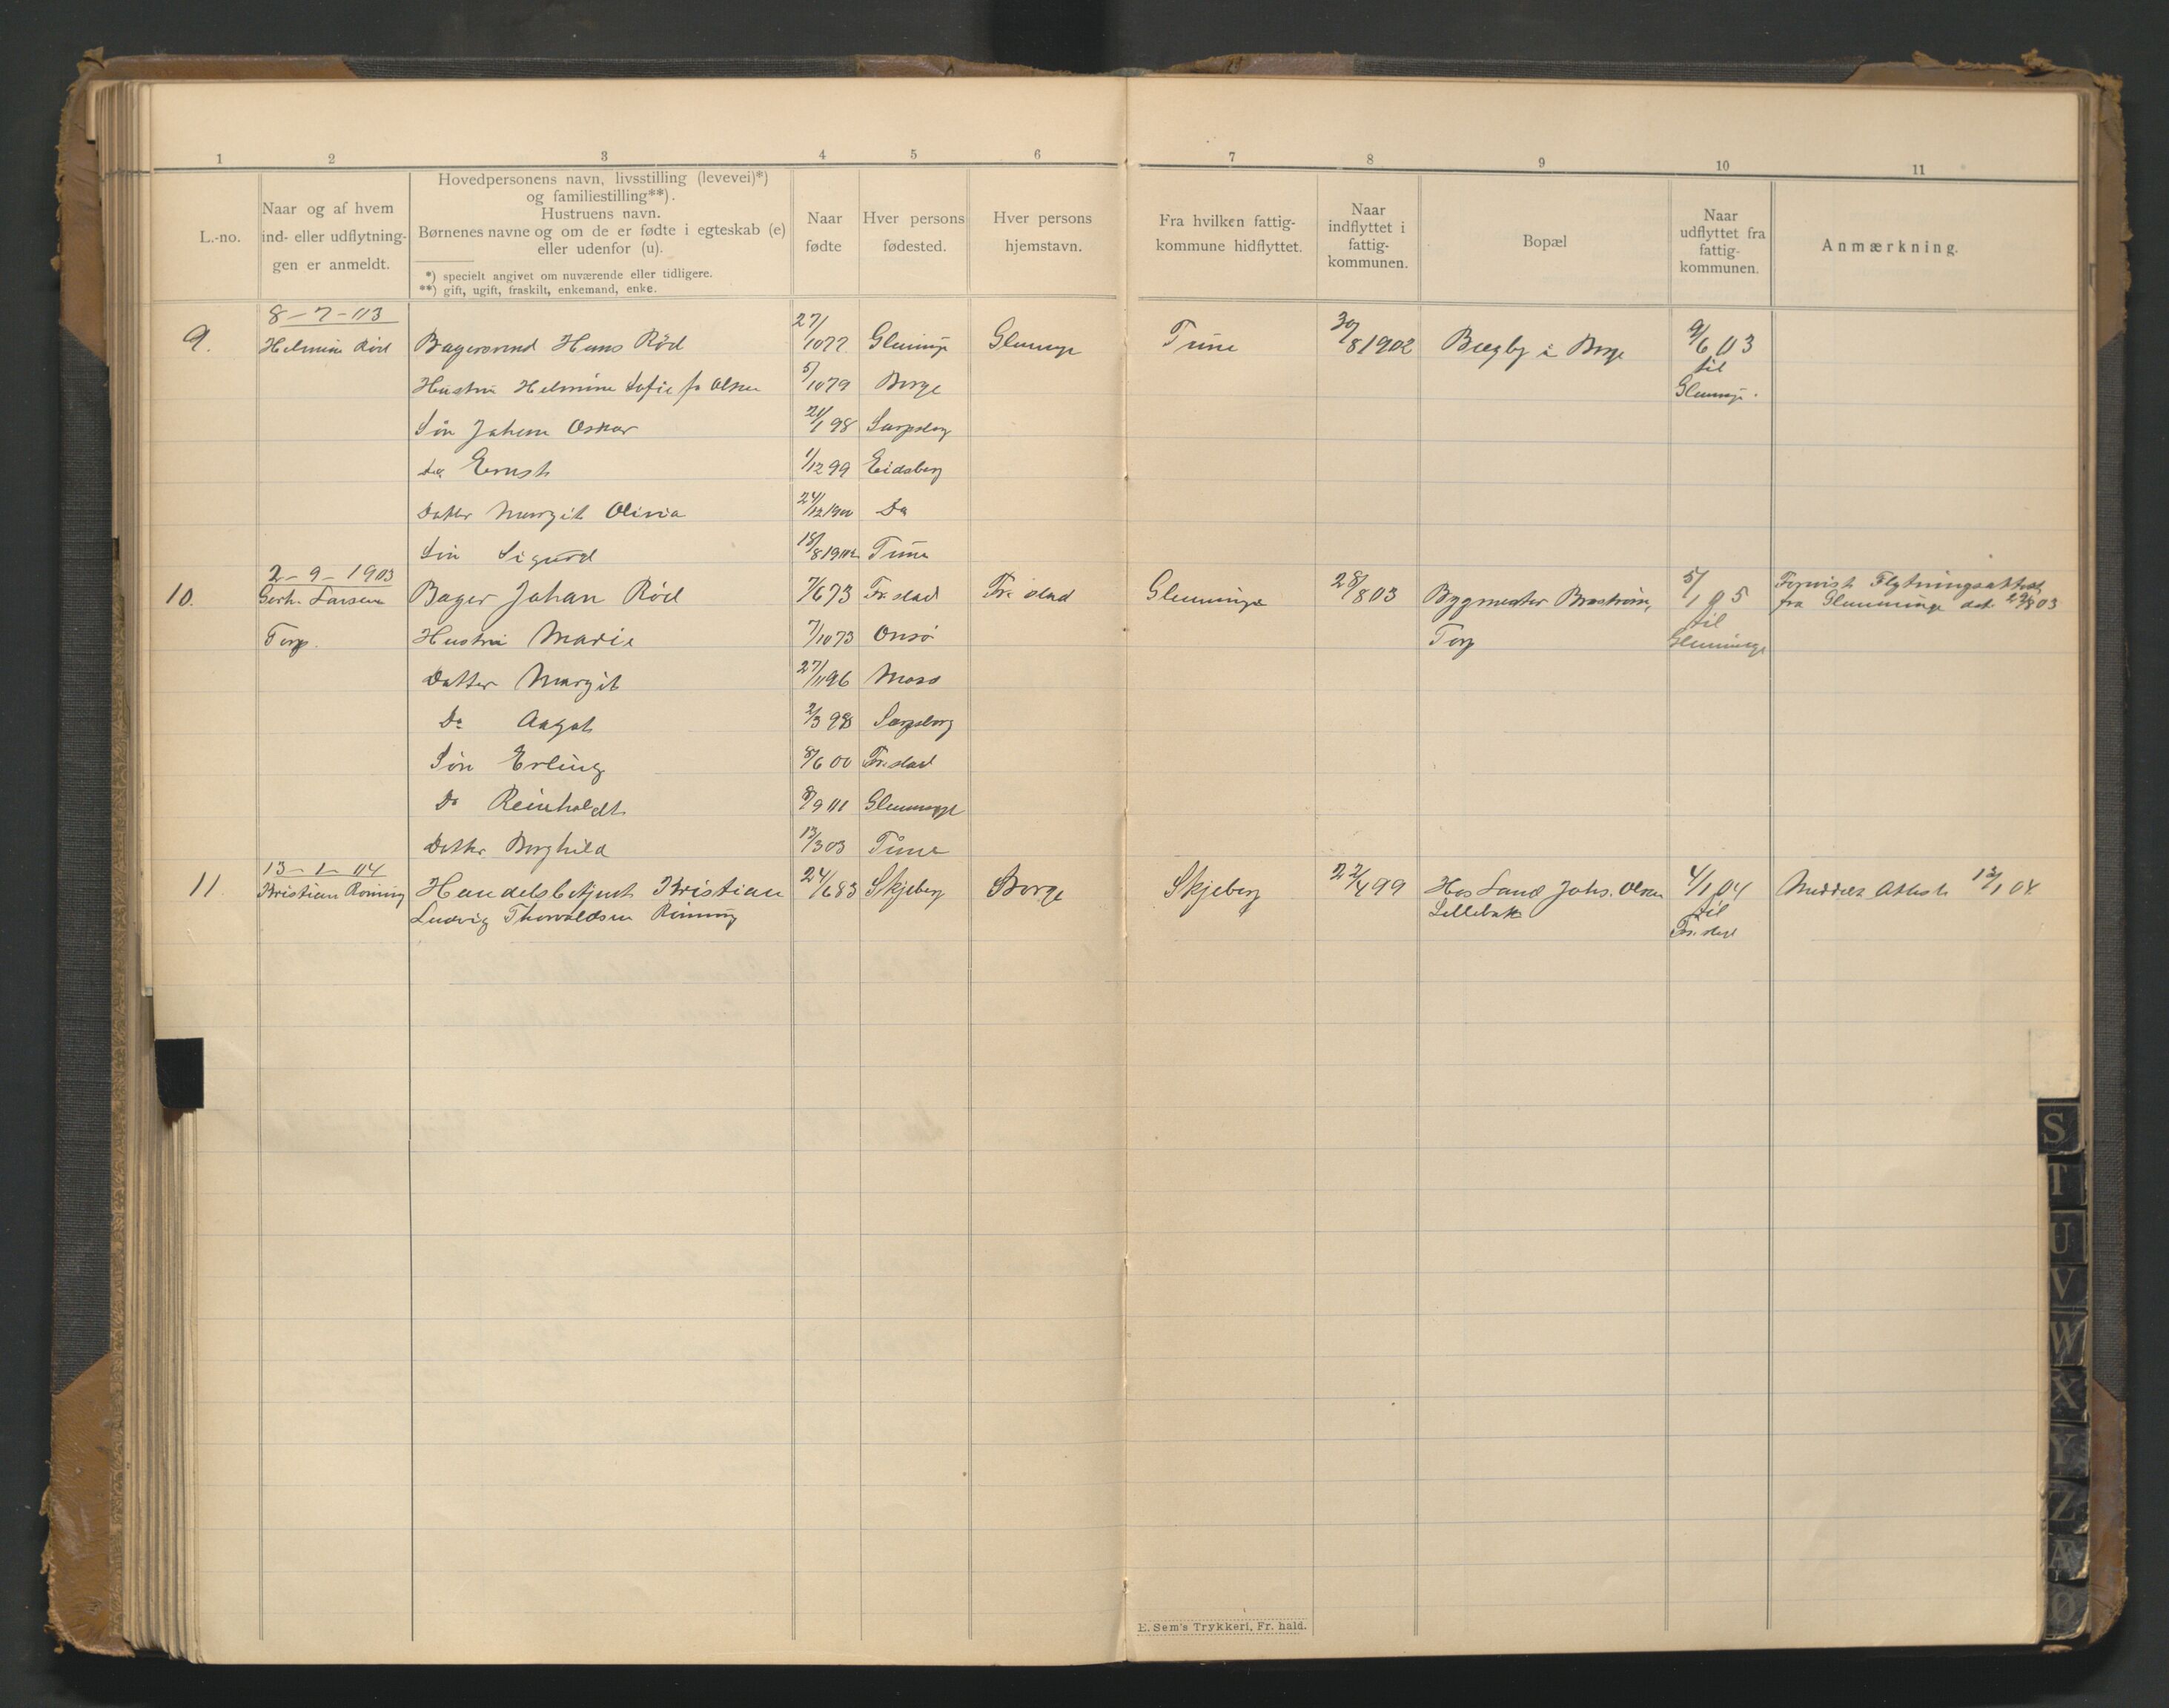 1 2 3 4 5 6 7 8 9 10 11
L.-no.
Naar og af hvem
ind- eller udflytning-
gen er anmeldt.
Hovedpersonens navn, livsstilling (levevei)*)
og familiestilling**).
Hustruens navn.
Børnenes navne og om de er fødte i egteskab (e)
eller udenfor (u).
*) specielt angivet om nuværende eller tidligere.
**) gift, ugift, fraskilt, enkemand, enke.
Naar
fødte
Hver persons
fødested.
Hver persons
hjemstavn.
Fra hvilken fattig-
kommune hidflyttet.
Naar
indflyttet i
fattig-
kommunen.
Bopæl
Naar
udflyttet fra
fattig-
kommunen.
Anmærkning.
8-7-03
9. Helmine Röd Bagersvend Hans Röd 27/1077 Glemminge Glemminge Tune 30/8 1902 Begby i Borge 9/6 03
til
Glemminge.
Hustru Helmine Sofie f. Olsen 5/1079 Borge
Sön Johan Oskar 21/1 98 Sarpsborg
Do Ernst 1/12 99 Eidsberg
Datter Margit Olivia 24/12 1900 Do
Sön Sigurd 18/8 1902 Tune
2-9-1903
10. Gerh. Larsen Bager Johan Röd 7/6 73 Fr.stad Fr.stad Glemminge 28/8 03 Bygmester Broström, 5/1 05 Forevist Flytningsattest
fra Glemminge dat. 29/8 03
Torp. Hustru Marie 7/10 73 Onsö Torp til
Glemminge
Datter Margit 27/11 96 Moss
Do Aagot 2/3 98 Sarpsborg
Sön Erling 8/6 00 Fr.stad
Do Reinholdt 8/9 01 Glemminge
Datter Borghild 13/3 03 Tune
13-1-04
11. Kristian Rönning Handelsbetjent Kristian 24/6 83 Skjeberg Borge Skjeberg 22/4 99 Hos Land. Johs. Olsen 4/1 04 Meddelt Attest 13/1 04
Ludvig Thorvaldsen Rönning Lillebak til
Fr.stad
E. Sem's Trykkeri, Fr. hald.
S
T
U
V
W
X
Y
Z
Æ
Ø